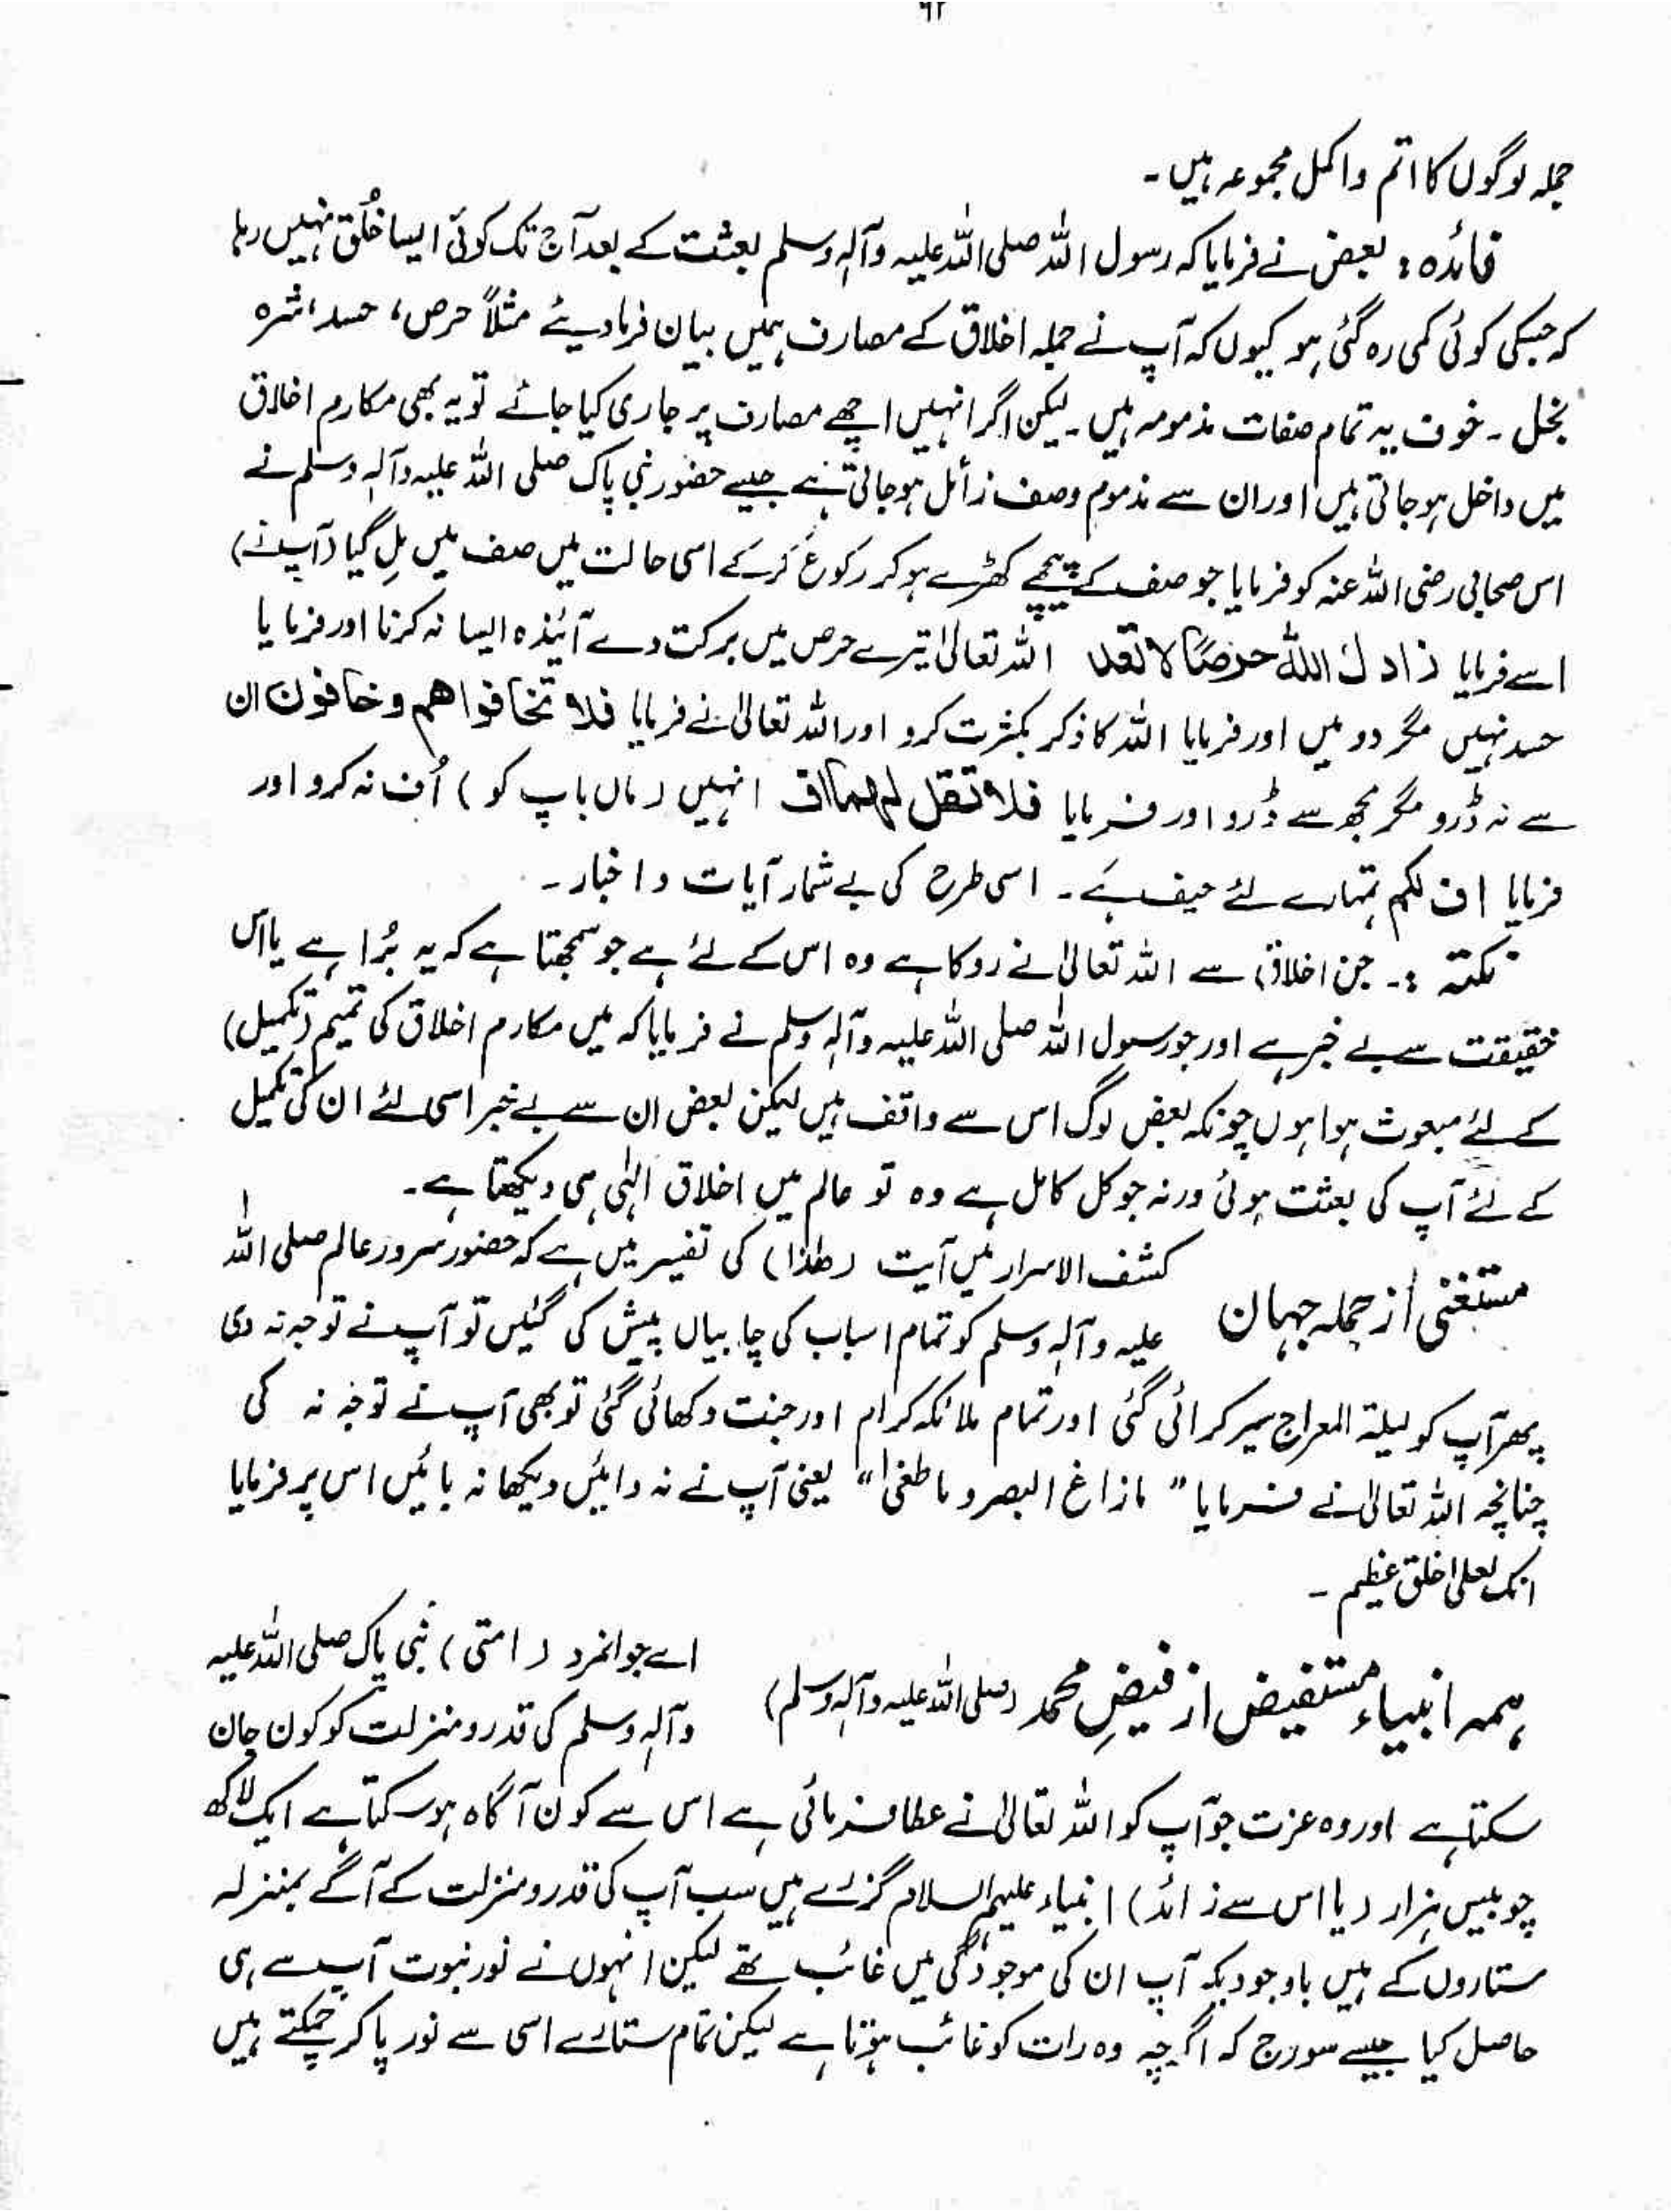 ۹۲
جملہ لوگوں کا اتم و اکمل مجموعہ ہیں۔
فائدہ : بعض نے فرمایا کہ رسول اللہ صلی اللہ علیہ وآلہ وسلم بعثت کے بعد آج تک کوئی ایسا خُلق نہیں رہا
کہ جسکی کوئی کمی رہ گئی ہو کیوں کہ آپ نے جملہ اخلاق کے مصارف ہمیں بیان فرما دیئے مثلاً حرص، حسد، شرہ
بخل ۔ خوف یہ تمام صفات مذمومہ ہیں ۔ لیکن اگر انہیں اچھے مصارف پر جاری کیا جائے تو یہ بھی مکارم اخلاق
میں داخل ہو جاتی ہیں اور ان سے مذموم وصف زائل ہو جاتی ہے جیسے حضور نبی پاک صلی اللہ علیہ وآلہ وسلم نے
اس صحابی رضی اللہ عنہ کو فرمایا جو صف کے پیچھے کھڑے ہو کر رکوع کر کے اسی حالت میں صف میں مل گیا (آپ نے)
اسے فرمایا زادك اللہ حرصًا لا تعد اللہ تعالیٰ تیرے حرص میں برکت دے آئندہ ایسا نہ کرنا اور فرمایا
حسد نہیں مگر دو میں اور فرمایا اللہ کا ذکر بکثرت کرو اور اللہ تعالیٰ نے فرمایا فلا تخافوا ھم و خافون ان
سے نہ ڈرو مگر مجھ سے ڈرو اور فرمایا فلا تقل لہما اف انہیں (ماں باپ کو) اُف نہ کرو اور
فرمایا اف لکم تمہارے لئے حیف ہے ۔ اسی طرح کی بے شمار آیات و اخبار ۔
نکتہ :۔ جن اخلاق سے اللہ تعالیٰ نے روکا ہے وہ اس کے لئے ہے جو سمجھتا ہے کہ یہ بُرا ہے یا اس
حقیقت سے بے خبر ہے اور جو رسول اللہ صلی اللہ علیہ وآلہ وسلم نے فرمایا کہ میں مکارم اخلاق کی تمیم (تکمیل)
کے لئے مبعوث ہوا ہوں چونکہ بعض لوگ اس سے واقف ہیں لیکن بعض ان سے بے خبر اسی لئے ان کی تکمیل
کے لئے آپ کی بعثت ہوئی ورنہ جو کل کامل ہے وہ تو عالم میں اخلاق الٰہی ہی دیکھتا ہے۔
مستغنی از جملہ جہان کشف الاسرار میں آیت (ھٰذا) کی تفسیر میں ہے کہ حضور سرور عالم صلی اللہ
علیہ وآلہ وسلم کو تمام اسباب کی چابیاں پیش کی گئیں تو آپ نے توجہ نہ دی
پھر آپ کو لیلۃ المعراج سیر کرائی گئی اور تمام ملائکہ کرام اور جنت دکھائی گئی تو بھی آپ نے توجہ نہ کی
چنانچہ اللہ تعالیٰ نے فرمایا " مازاغ البصر و ما طغیٰ " یعنی آپ نے نہ دائیں دیکھا نہ بائیں اس پر فرمایا
انک لعلیٰ خلق عظیم ۔
ہمہ انبیاء مستفیض از فیضِ محمد (صلی اللہ علیہ وآلہ وسلم) اے جوانمرد (امتی) نبی پاک صلی اللہ علیہ
وآلہ وسلم کی قدر و منزلت کو کون جان
سکتا ہے اور وہ عزت جو آپ کو اللہ تعالیٰ نے عطا فرمائی ہے اس سے کون آگاہ ہو سکتا ہے ایک لاکھ
چوبیس ہزار (یا اس سے زائد) انبیاء علیہم السلام گزرے ہیں سب آپ کی قدر و منزلت کے آگے بمنزلہ
ستاروں کے ہیں باوجودیکہ آپ ان کی موجودگی میں غائب تھے لیکن انہوں نے نور نبوت آپ سے ہی
حاصل کیا جیسے سورج کہ اگرچہ وہ رات کو غائب ہوتا ہے لیکن تمام ستارے اسی سے نور پا کر چمکتے ہیں